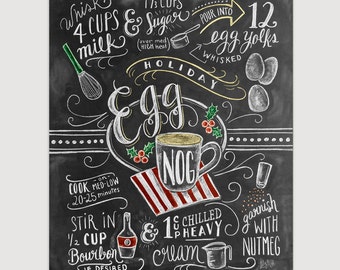 Whisk
4 CUPS milk
& 1½ CUPS Sugar
(over med-high heat)
POUR INTO
12
egg yolks
WHISKED
HOLIDAY
Egg
NOG
COOK ON MED-LOW
20-25 minutes
STIR IN
½ CUP
Bourbon
IF DESIRED
& 1 C CHILLED
HEAVY
cream
garnish
WITH
NUTMEG